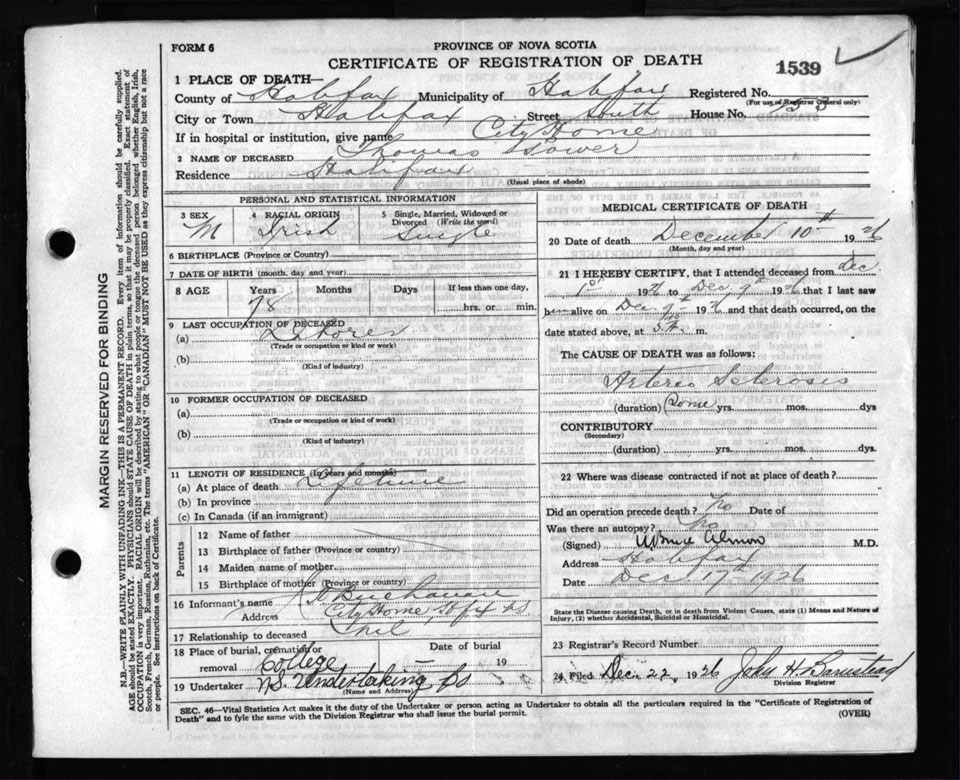 FORM 6
PROVINCE OF NOVA SCOTIA
CERTIFICATE OF REGISTRATION OF DEATH
1539
1 PLACE OF DEATH—
County of Halifax Municipality of Halifax Registered No.
(For use of Registrar General only)
City or Town Halifax Street South House No.
If in hospital or institution, give name City Home
2 NAME OF DECEASED Thomas
Residence Halifax
(Usual place of abode)
PERSONAL AND STATISTICAL INFORMATION
3 SEX M
4 RACIAL ORIGIN Irish
5 Single, Married, Widowed or Divorced (Write the word) Single
6 BIRTHPLACE (Province or Country)
7 DATE OF BIRTH (month, day and year)
8 AGE Years Months Days If less than one day,
78 hrs. or min.
9 LAST OCCUPATION OF DECEASED
(a) Laborer
(Trade or occupation or kind or work)
(b)
(Kind of industry)
10 FORMER OCCUPATION OF DECEASED
(a)
(Trade or occupation or kind of work)
(b)
(Kind of industry)
11 LENGTH OF RESIDENCE (In years and months)
(a) At place of death Lifetime
(b) In province
(c) In Canada (if an immigrant)
Parents
12 Name of father
13 Birthplace of father (Province or country)
14 Maiden name of mother
15 Birthplace of mother (Province or country)
16 Informant's name Buchanan
Address City Home Hfx NS
17 Relationship to deceased Nil
18 Place of burial, cremation or removal College
Date of burial — 19
19 Undertaker N.S. Undertaking Co
(Name and Address)
MEDICAL CERTIFICATE OF DEATH
20 Date of death December 10th 1926
(Month, day and year)
21 I HEREBY CERTIFY, that I attended deceased from Dec
1st 1926 to Dec 9th 1926 that I last saw
h alive on Dec 9th 1926 and that death occurred, on
date stated above, at m.
The CAUSE OF DEATH was as follows:
Arterio Sclerosis
(duration) Some yrs. mos. dys
CONTRIBUTORY
(Secondary)
(duration) yrs. mos. dys.
22 Where was disease contracted if not at place of death?
Did an operation precede death? No Date of
Was there an autopsy? No
(Signed) Almon M.D.
Address Halifax
Date Dec 17th 1926
State the Disease causing Death, or in death from Violent Causes, state (1) Means and Nature of
Injury, (2) whether Accidental, Suicidal or Homicidal.
23 Registrar's Record Number
24 Filed Dec. 22, 1926 John H. Barnstead
Division Registrar
SEC. 46—Vital Statistics Act makes it the duty of the Undertaker or person acting as Undertaker to obtain all the particulars required in the "Certificate of Registration of
Death" and to fyle the same with the Division Registrar who shall issue the burial permit.
(OVER)
MARGIN RESERVED FOR BINDING
N.B.—WRITE PLAINLY WITH UNFADING INK—THIS IS A PERMANENT RECORD. Every item of information should be carefully supplied.
AGE should be stated EXACTLY. PHYSICIANS should STATE CAUSE OF DEATH in plain terms, so that it may be properly classified. Exact statement of
OCCUPATION is very important. RACIAL ORIGIN will be described by stating to what people or tongue the deceased person belonged whether English, Irish,
Scotch, French, German, Russian, Ruthenian, etc. The terms "AMERICAN" OR "CANADIAN" MUST NOT BE USED as they express citizenship but not a race
or people. See instructions on back of Certificate.